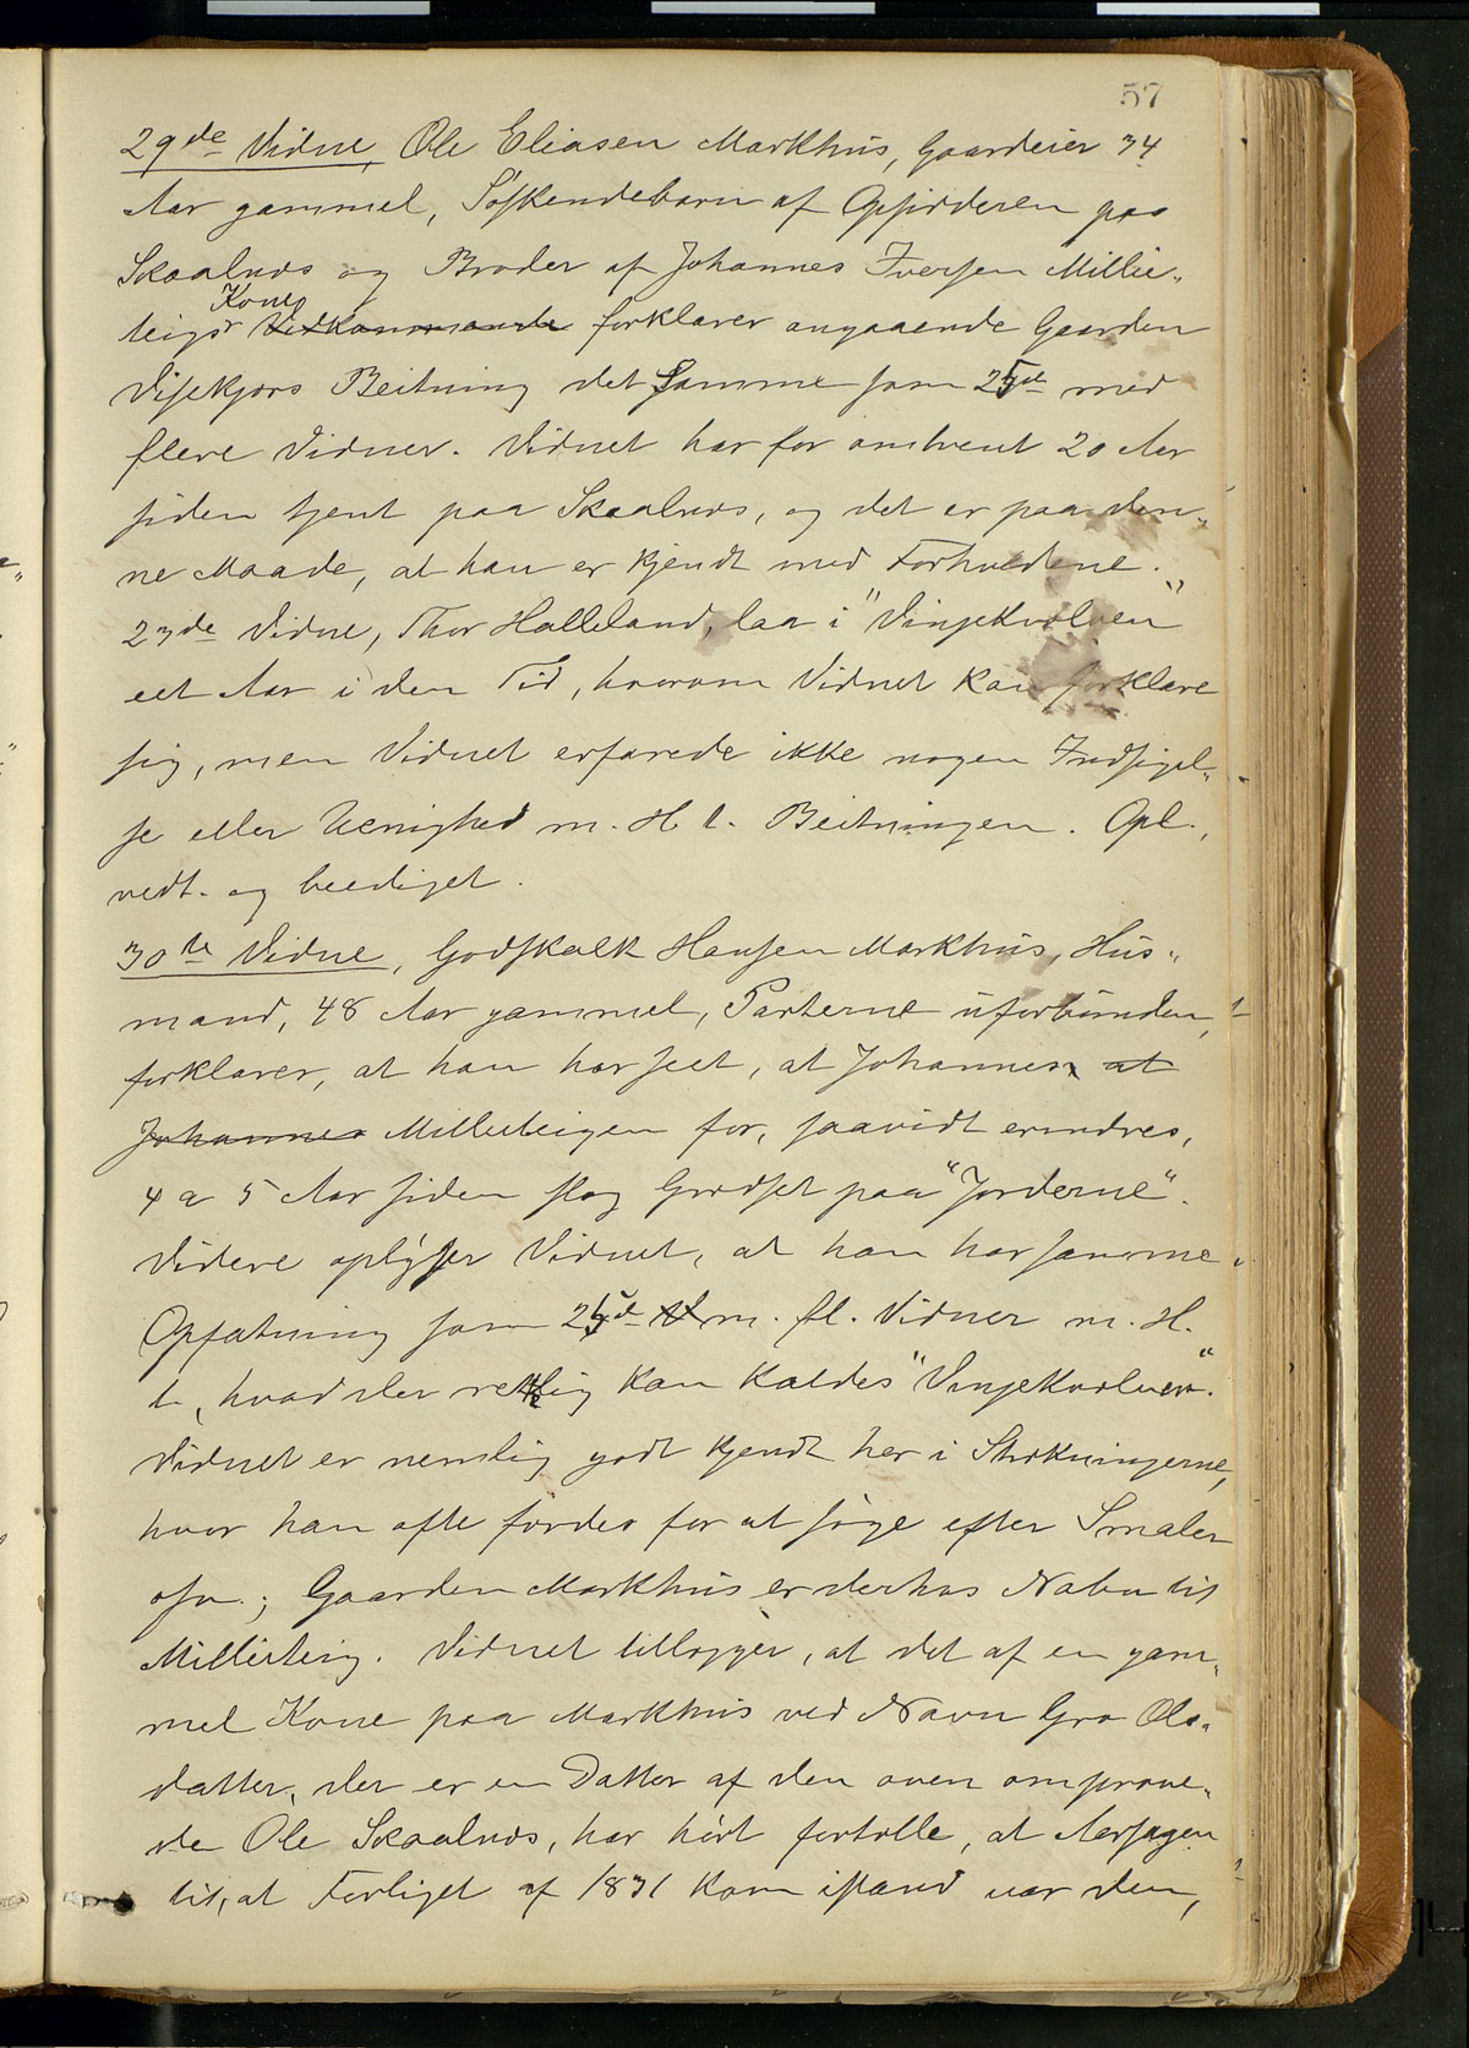 57
29de Vidne, Ole Eliasen Markhus, Gaardeier 34
Aar gammel, Søskendebarn af Opsidderen paa
Skaalnæs og Broder af Johannes Iversen Millie„
teigs Kone Vedkommende forklarer angaaende Gaarden
Visekjøns Beitning det samme som 25de med
flere Vidner. Vidnet har for omtrent 20 Aar
siden tjent paa Skaalnæs, og det er paa den„
ne Maade, at han er kjendt med Forholdene.
23de Vidne, Thor Halleland, laa i "Vinjekvolven"
eet Aar i den Tid, hvorom Vidnet kan forklare
sig, men Vidnet erfarede ikke nogen Indsigel„
se eller Uenighed m. H. t. Beitningen. Opl.,
vedt. og beediget.
30te Vidne, Godskalk Hansen Markhus, Hus„
mand, 48 Aar gammel, Parterne uforbunden,
forklarer, at han har seet, at Johannes at
Johannes Millieteigen for, saavidt erindres,
4 a 5 Aar siden slog Græsset paa "Jorderne".
Videre oplyser Vidnet, at han har samme
Opfatning som 25de V m. fl. Vidner m. H.
t. hvad der rettelig kan kaldes "Vinjekvolven".
Vidnet er nemlig godt kjendt her i Strøkningerne,
hvor han ofte færdes for at søge efter Smaler
osv.; Gaarden Markhus er derhos Nabo til
Millieteig. Vidnet tillægger, at det af en gam„
mel Kone paa Markhus ved Navn Gro Ols„
datter, der er en Datter af den oven omprove„
de Ole Skaalnæs, har hørt fortælle, at Aarsagen
til, at Forliget af 1831 kom istand var den,